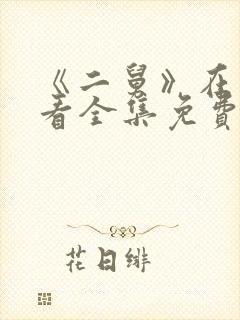 《二舅》在
看全集免费
花日绯